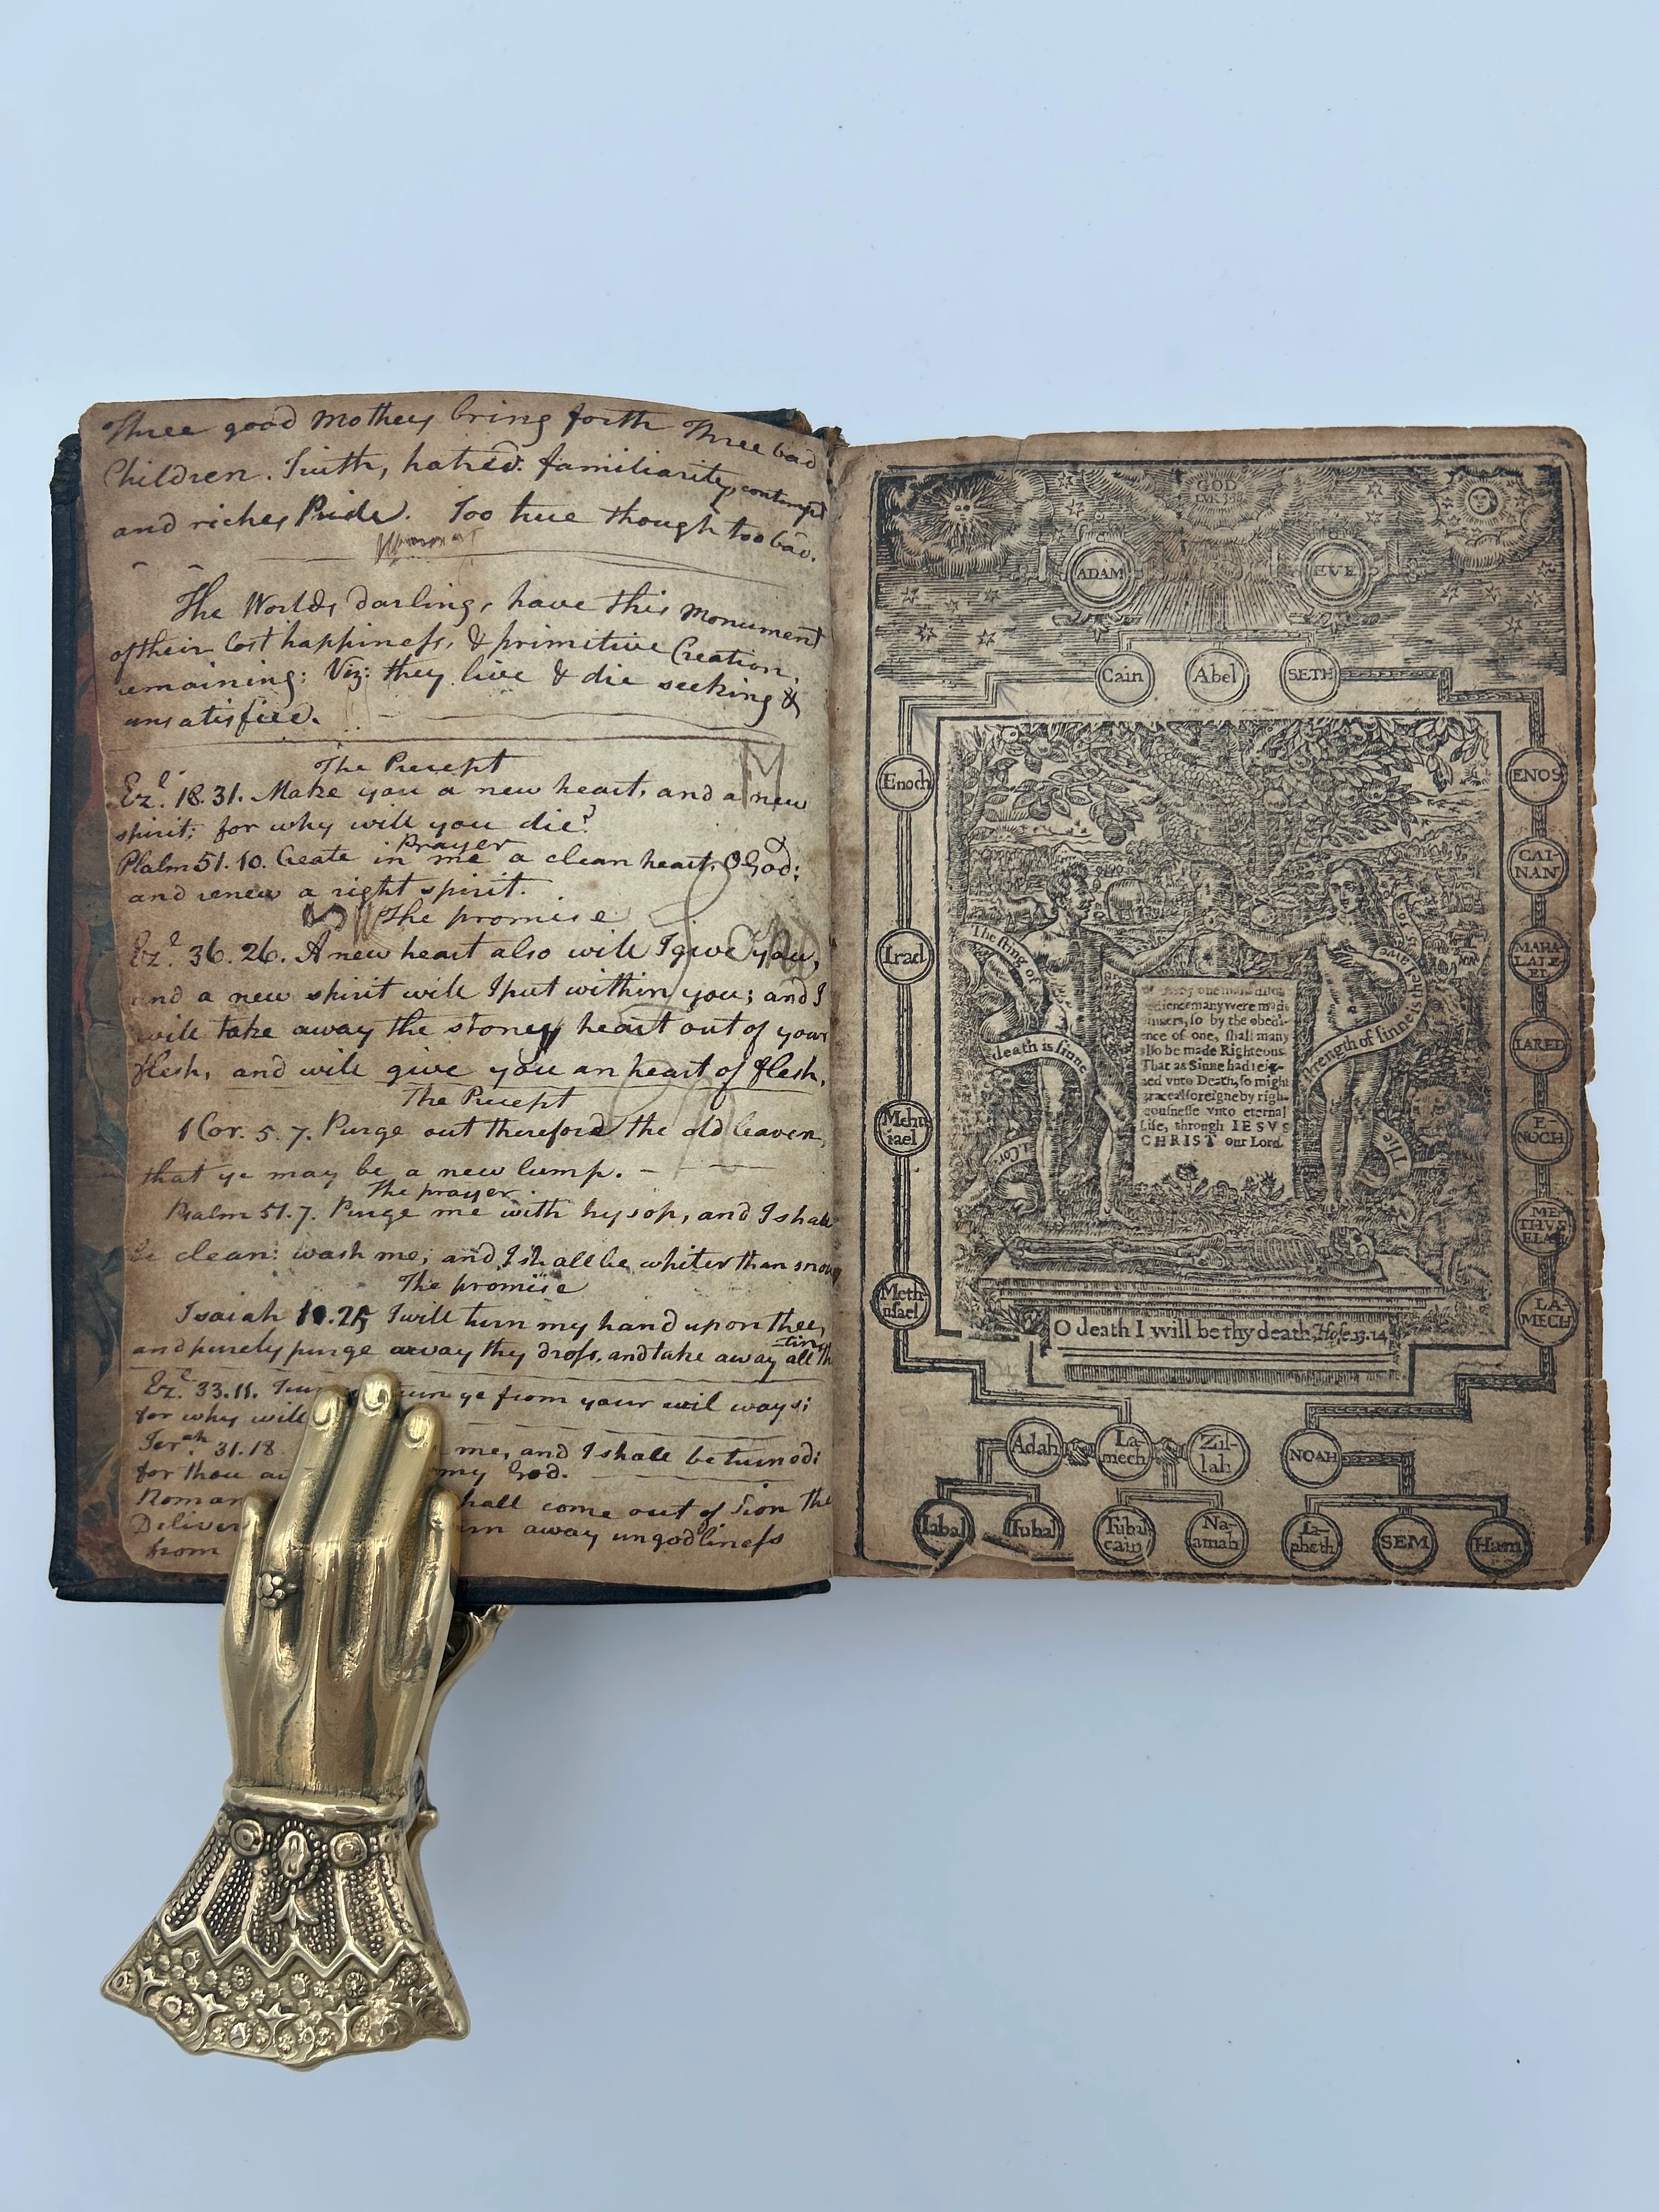 Three good Mothers bring forth Three bad
Children. Truth, hatred. familiarity, contempt
and riches Pride. Too true though too bad.
The Worlds darlings have this Monument
of their lost happiness, & primitive Creation,
remaining: Viz: they live & die seeking &
unsatisfied.
The Precept
Ezl. 18.31. Make you a new heart, and a new
spirit; for why will you die?
Prayer
Psalm 51.10. Create in me a clean heart, O God;
and renew a right spirit.
The promise
Ezl. 36.26. A new heart also will I give you,
and a new spirit will I put within you; and I
will take away the stoney heart out of your
flesh, and will give you an heart of flesh,
The Precept
1 Cor. 5.7. Purge out therefore the old leaven,
that ye may be a new lump.
The prayer
Psalm 51.7. Purge me with hysop, and I shall
be clean: wash me, and I shall be whiter than snow
The promise
Isaiah 10.25 I will turn my hand upon thee,
and purely purge away thy dross, and take away all th
tin
Ezl. 33.11. ye from your evil ways;
for why will
Jerah. 31.18 me, and I shall be turned:
for thou my God.
Roman shall come out of Sion the
Deliver away ungodliness
from
GOD
LVK 3.38
ADAM
EVE
Cain
Abel
SETH
Enoch
Irad
Mehu
iael
Meth
usael
ENOS
CAI-
NAN
MAHA
LALE-
EL
IARED
E-
NOCH
ME
THVS
ELAH
LA-
MECH
The sting of
death is sinne
1 Cor.
The
strength of sinne is the Lawe
dience many were made
sinners, so by the obedi-
ence of one, shall many
also be made Righteous
That as Sinne had reig-
ned vnto Death, so might
grace also reigne by righ-
eousnesse vnto eternal
Life, through IESVS
CHRIST our Lord.
O death I will be thy death, Hose. 13. 14
Adah
La-
mech
Zil-
lah
NOAH
Iabal
Iubal
Tubal
cain
Na-
amah
Ia-
pheth
SEM
Ham